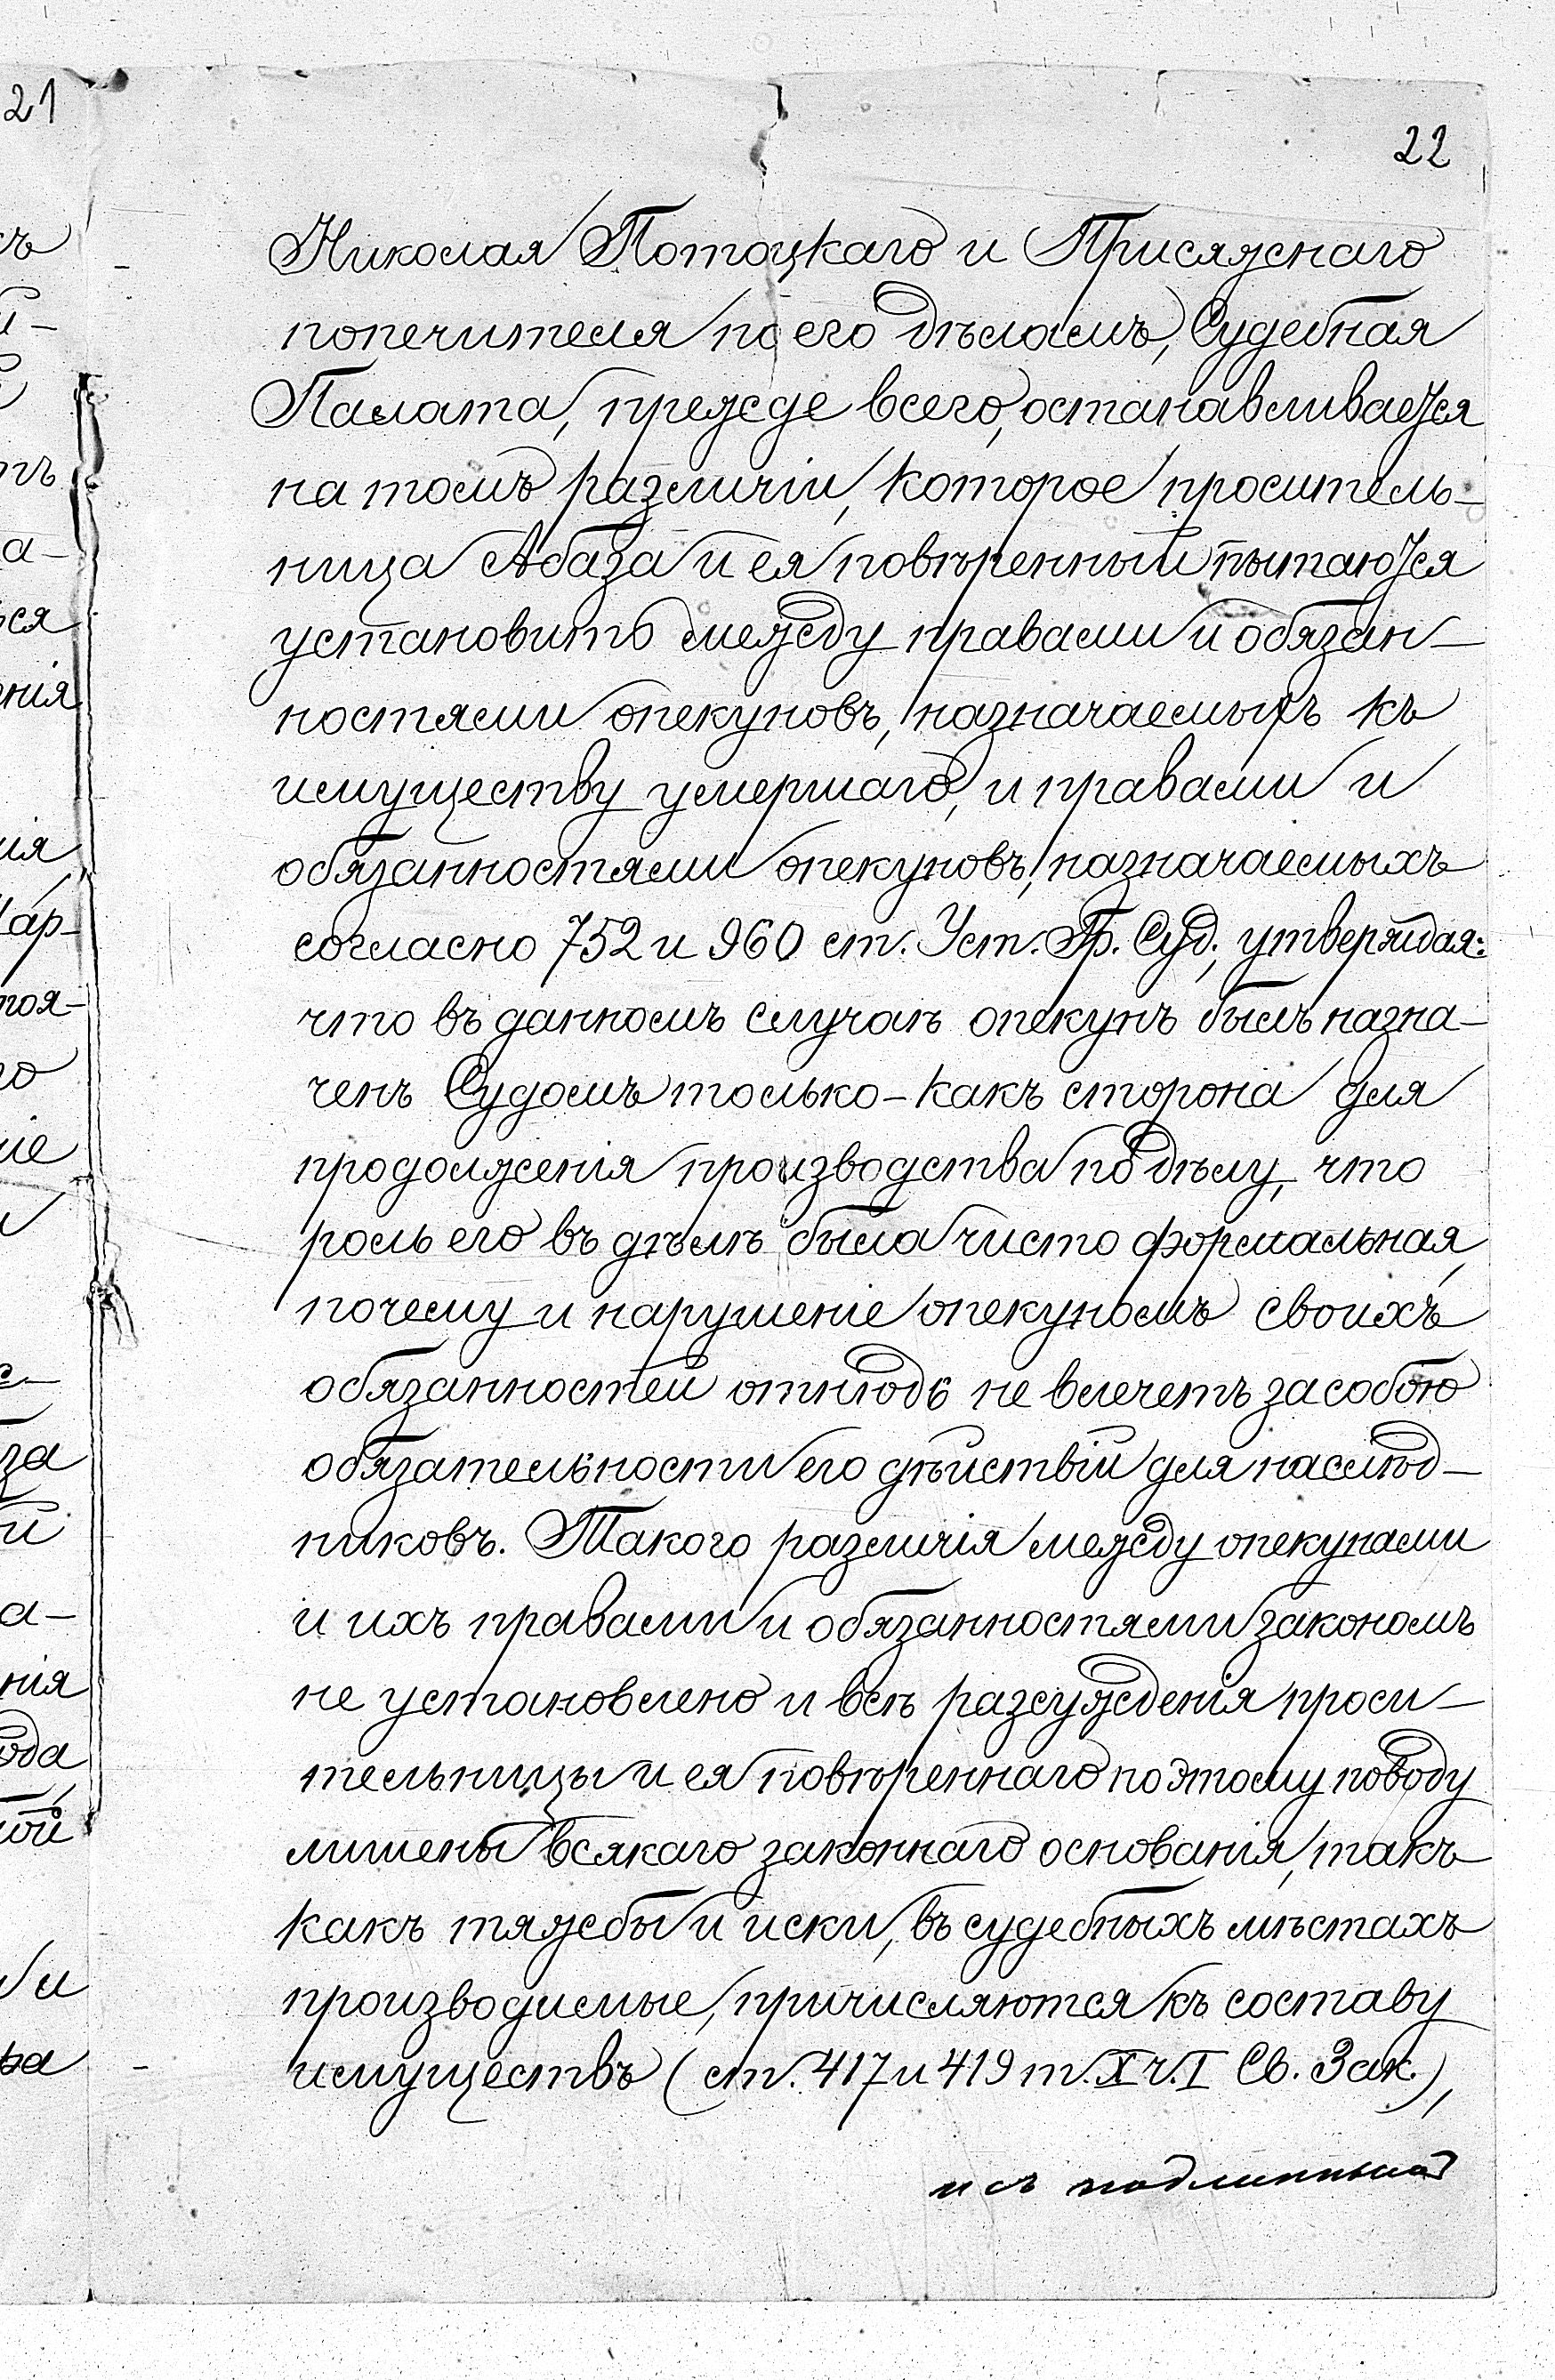 22
Николая Потоцкаго и Присяжнаго
попечителя по его дѣламъ, Судебная
Палата, прежде всего, останавливается
на томъ различіи, которое проситель-
ница Абаза и ея повѣренный пытаются
установить между правами и обязан-
ностями опекуновъ, назначаемыхъ къ
имуществу умершаго, и правами и
обязанностями опекуновъ, назначаемыхъ
согласно 752 и 960 ст. Уст. Гр. Суд., утверждая:
что въ данномъ случаѣ опекунъ былъ назна-
ченъ Судомъ только-какъ сторона для
продолженія производства по дѣлу, что
роль его въ дѣлѣ была чисто формальная,
почему и нарушеніе опекуномъ своихъ
обязанностей отнюдь не влечетъ за собою
обязательности его дѣйствій для наслѣд-
никовъ. Такого различія между опекунами
и ихъ правами и обязанностями закономъ
не установлено и всѣ разсужденія проси-
тельницы и ея повѣреннаго по этому поводу
лишены всякаго законнаго основанія, такъ
какъ тяжебы и иски, въ судебныхъ мѣстахъ
производимые, причисляются къ составу
имуществъ (ст. 417 и 419 т. X ч. I Св. Зак.),
и съ подлинным
21
съ
тъ
а-
ся
енія
нія
Нар-
тоя-
го
ніе
с-
за
й
а-
нія
ода
ной
и
ва